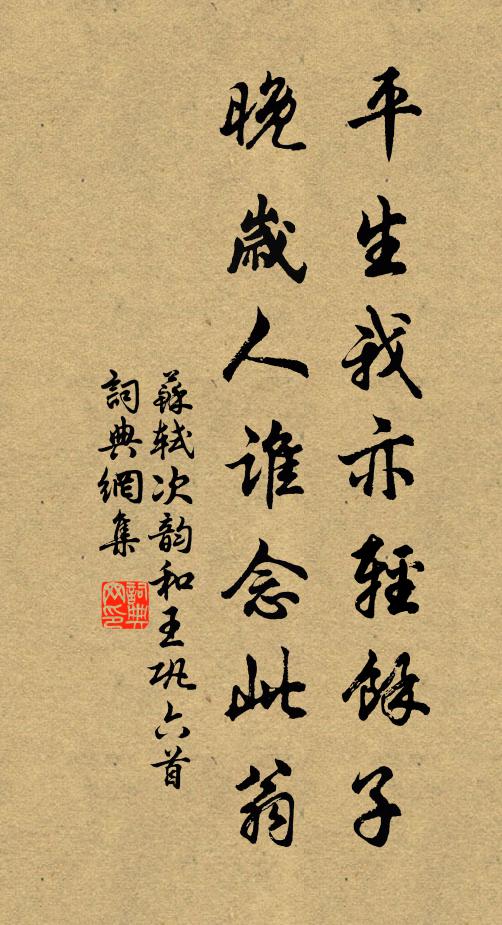 平生我亦輕餘子
晚歲人誰念此翁
蘇軾次韵和王巩六首
詞典網集
詞典网印